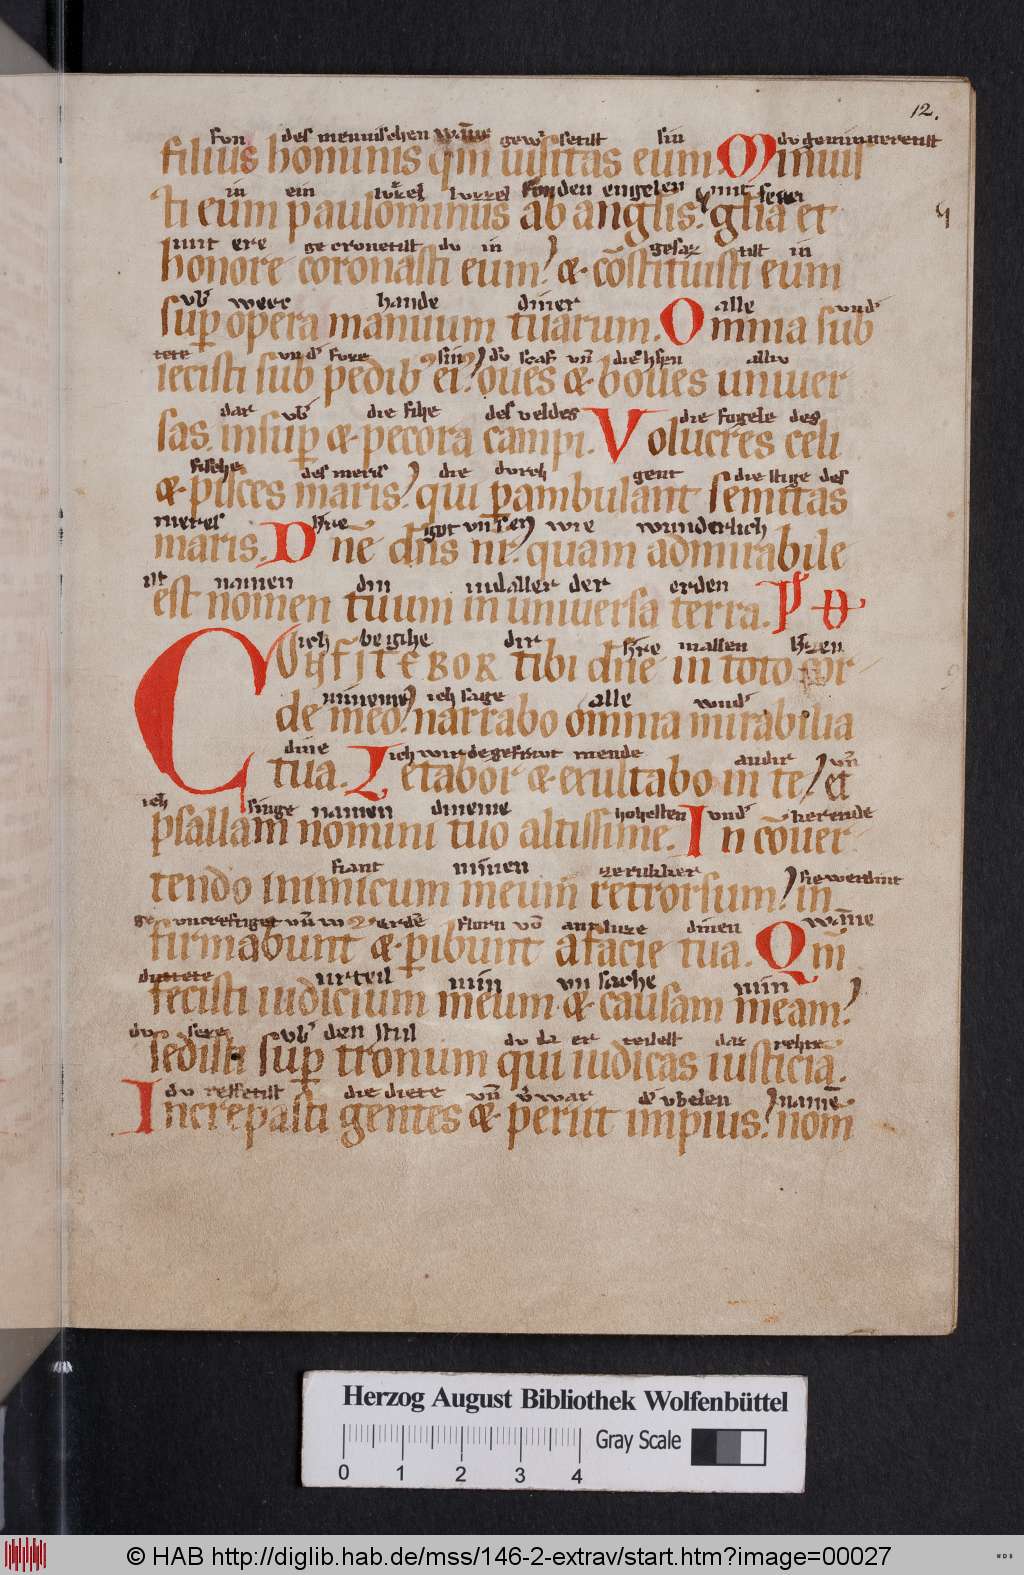 12.
sun des mennischen wāne gewisetist sin du geminneretist
filius hominis qm̄ uisitas eum. Minuis
in ein luzzel luzzel fon den engelen mit
ti eum paulominus ab anglis: glia et
unt ere gecronetist du in gesaz tist in
honore coronasti eum: & cōstituisti eum
vb' werc hande diner alle vnd'
sup opera manuum tuarum. Omnia sub
tete vnd' fuze sin du scaf vn̄ die ohsen alliu
iecisti sub pedib' ei: oues & boues uniuer
dar vb' die fihe des veldes die fugele des
sas. insup & pecora campi. Volucres celi
fische des meris die durch gent die stige des
& pisces maris: qui pambulant semitas
meres h're got vnser wie wunderlich
maris. Dn̄e dn̄s nr̄. quam admirabile
ist namen din in aller der erden
est nomen tuum in uniuersa terra. Ps D
ich begihe dir h're in allen h'zen
CONFITEBOR tibi dn̄e in toto cor
minem ich sage alle wnd'
de meo: narrabo omnia mirabilia
dine ich wirde gefrowt mende an dir vn̄
tua. Letabor & exultabo in te: et
ich singe namen dineme hohesten vnd' kerende
psallam nomini tuo altissime. In cōuer
fiant minen zerukker sie werdint
tendo inimicum meum retrorsum: in
dinen wāne
firmabunt & pibunt a facie tua. Qm̄
urteil min vn̄ sache min
fecisti iudicium meum & causam meam:
du seze vb' den stul du da er teilest daz rehte
sedisti sup tronum qui iudicas iusticiā.
du reffetist die diete vn̄ v'war d' vbelen namē
Increpasti gentes & periit impius: nom̄
Herzog August Bibliothek Wolfenbüttel
Gray Scale
0 1 2 3 4
© HAB http://diglib.hab.de/mss/146-2-extrav/start.htm?image=00027